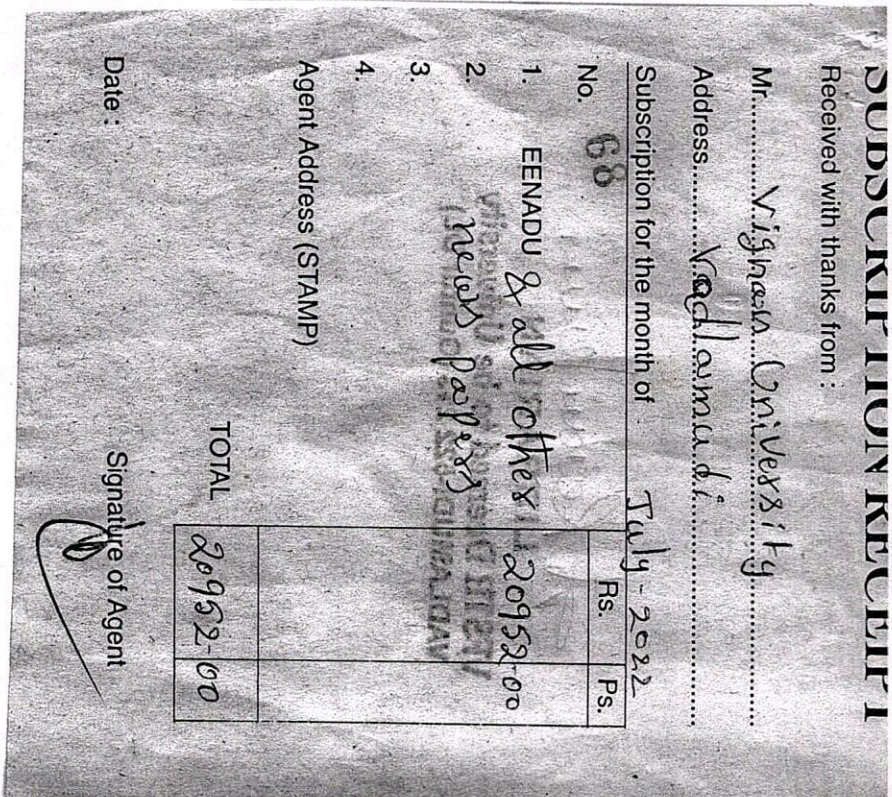 SUBSCRIPTION RECEIPT
Received with thanks from :
Mr. Vignan University
Address Vadlamudi
Subscription for the month of July - 2022
No. 68 Rs. Ps.
1. EENADU & all other 20952-00
2. news papers
3.
4.
Agent Address (STAMP)
TOTAL 20952-00
Date : Signature of Agent